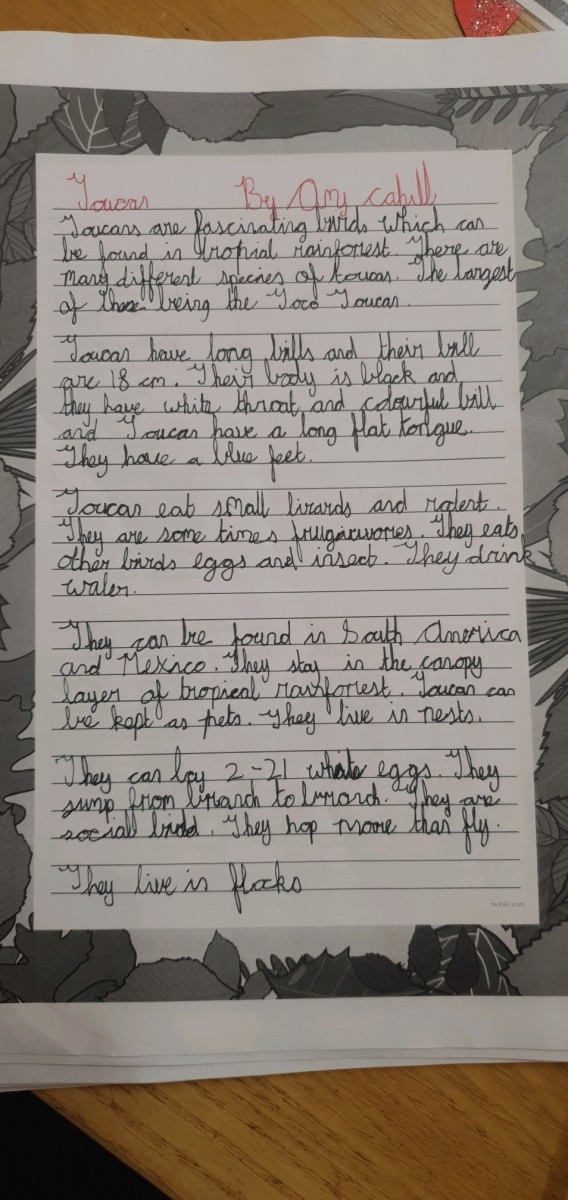 Toucan By Amy cahill
Toucans are fascinating birds which can
be found in tropial rainforest. There are
many different species of toucan. The largest
of these being the Toco Toucan.
Toucan have long bills and their bill
are 18 cm. Their body is black and
they have white throat and colourful bill
and Toucan have a long flat tongue.
They have a blue feet.
Toucan eat small lizards and rodent.
They are some times frugarivores. They eats
other birds eggs and insect. They drink
water.
They can be found in South America
and Mexico. They stay in the canopy
layer of tropical rainforrest. Toucan can
be kept as pets. They live in nests.
They can lay 2-21 white eggs. They
jump from branch to branch. They are
social bird. They hop more than fly.
They live in flocks
twinkl.com